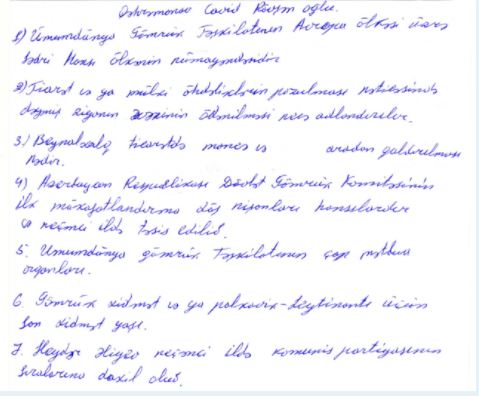 Osmanov Cavid Rövşən oğlu.
1) Ümumdünya Gömrük Təşkilatının Avropa ölkəsi üzrə
hansı ölkənin nümayəndəsidir
2) Ticarət və ya mülki öhdəliklərin pozulması nəticəsində
dəymiş ziyanın əvəzinin ödənilməsi necə adlandırılır.
3.) Beynəlxalq ticarətdə maneə və aradan qaldırılması
nədir.
4) Azərbaycan Respublikası Dövlət Gömrük Komitəsinin
ilk mükafatlandırma döş nişanları hansılardır
və neçənci ildə təsis edilib.
5. Ümumdünya gömrük Təşkilatının çap mətbuat
orqanları.
6. Gömrük xidmət və ya polkovnik-leytinantı üçün
son xidmət yaşı.
7. Heydər Əliyev neçənci ildə komunis partiyasının
sıralarına daxil olub.